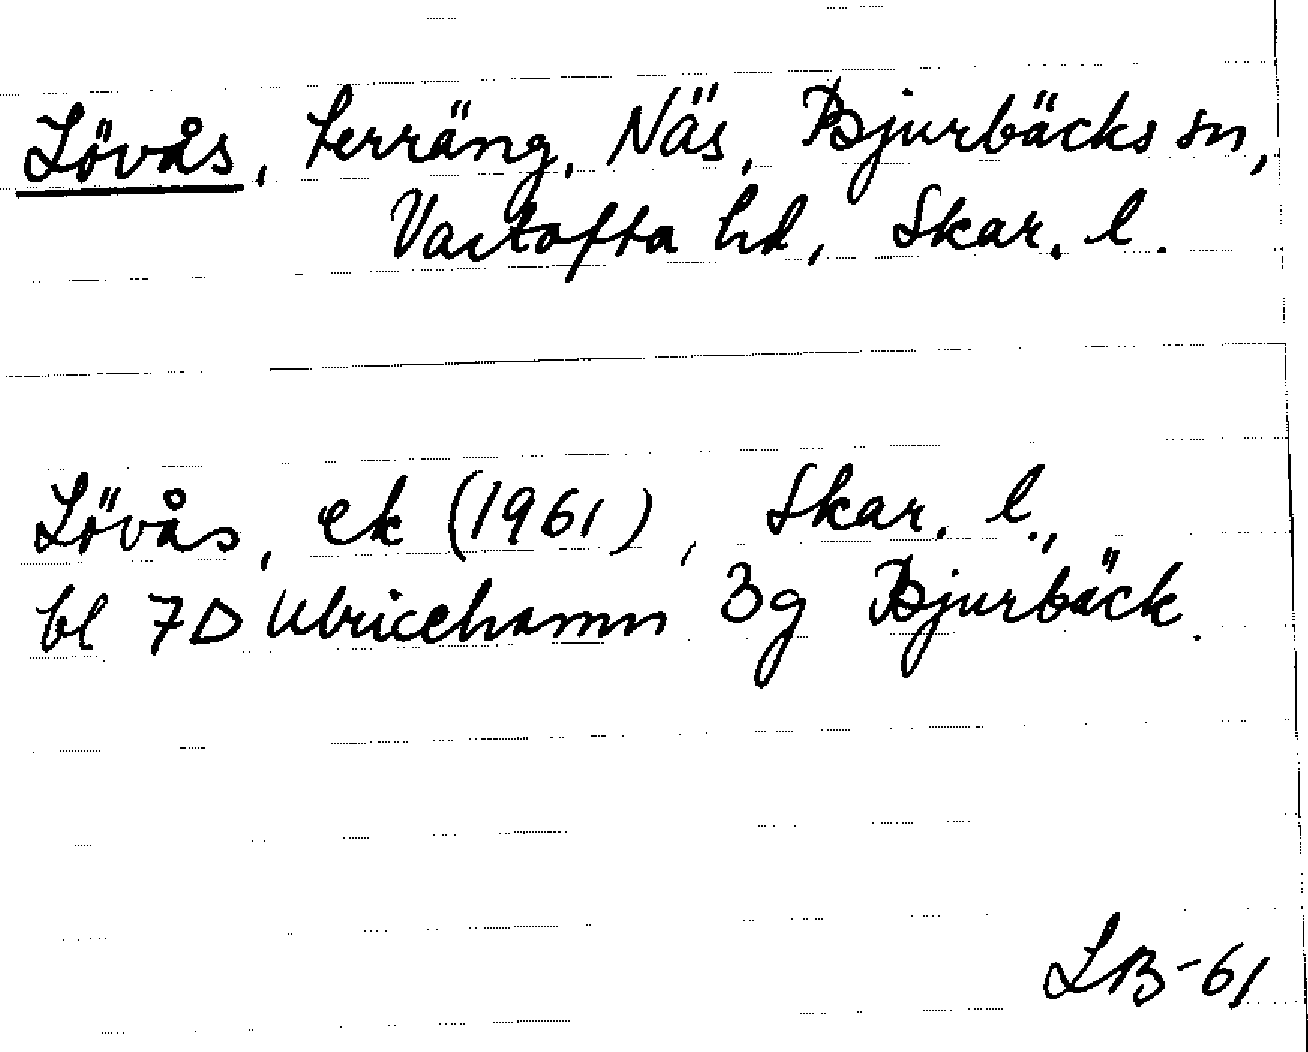 Lövås, terräng, Näs, Bjurbäcks sn,
Vartofta hd, Skar. l.
Lövås, ek (1961), Skar. l.,
bl 7D Ulricehamn 3g Bjurbäck.
LB-61